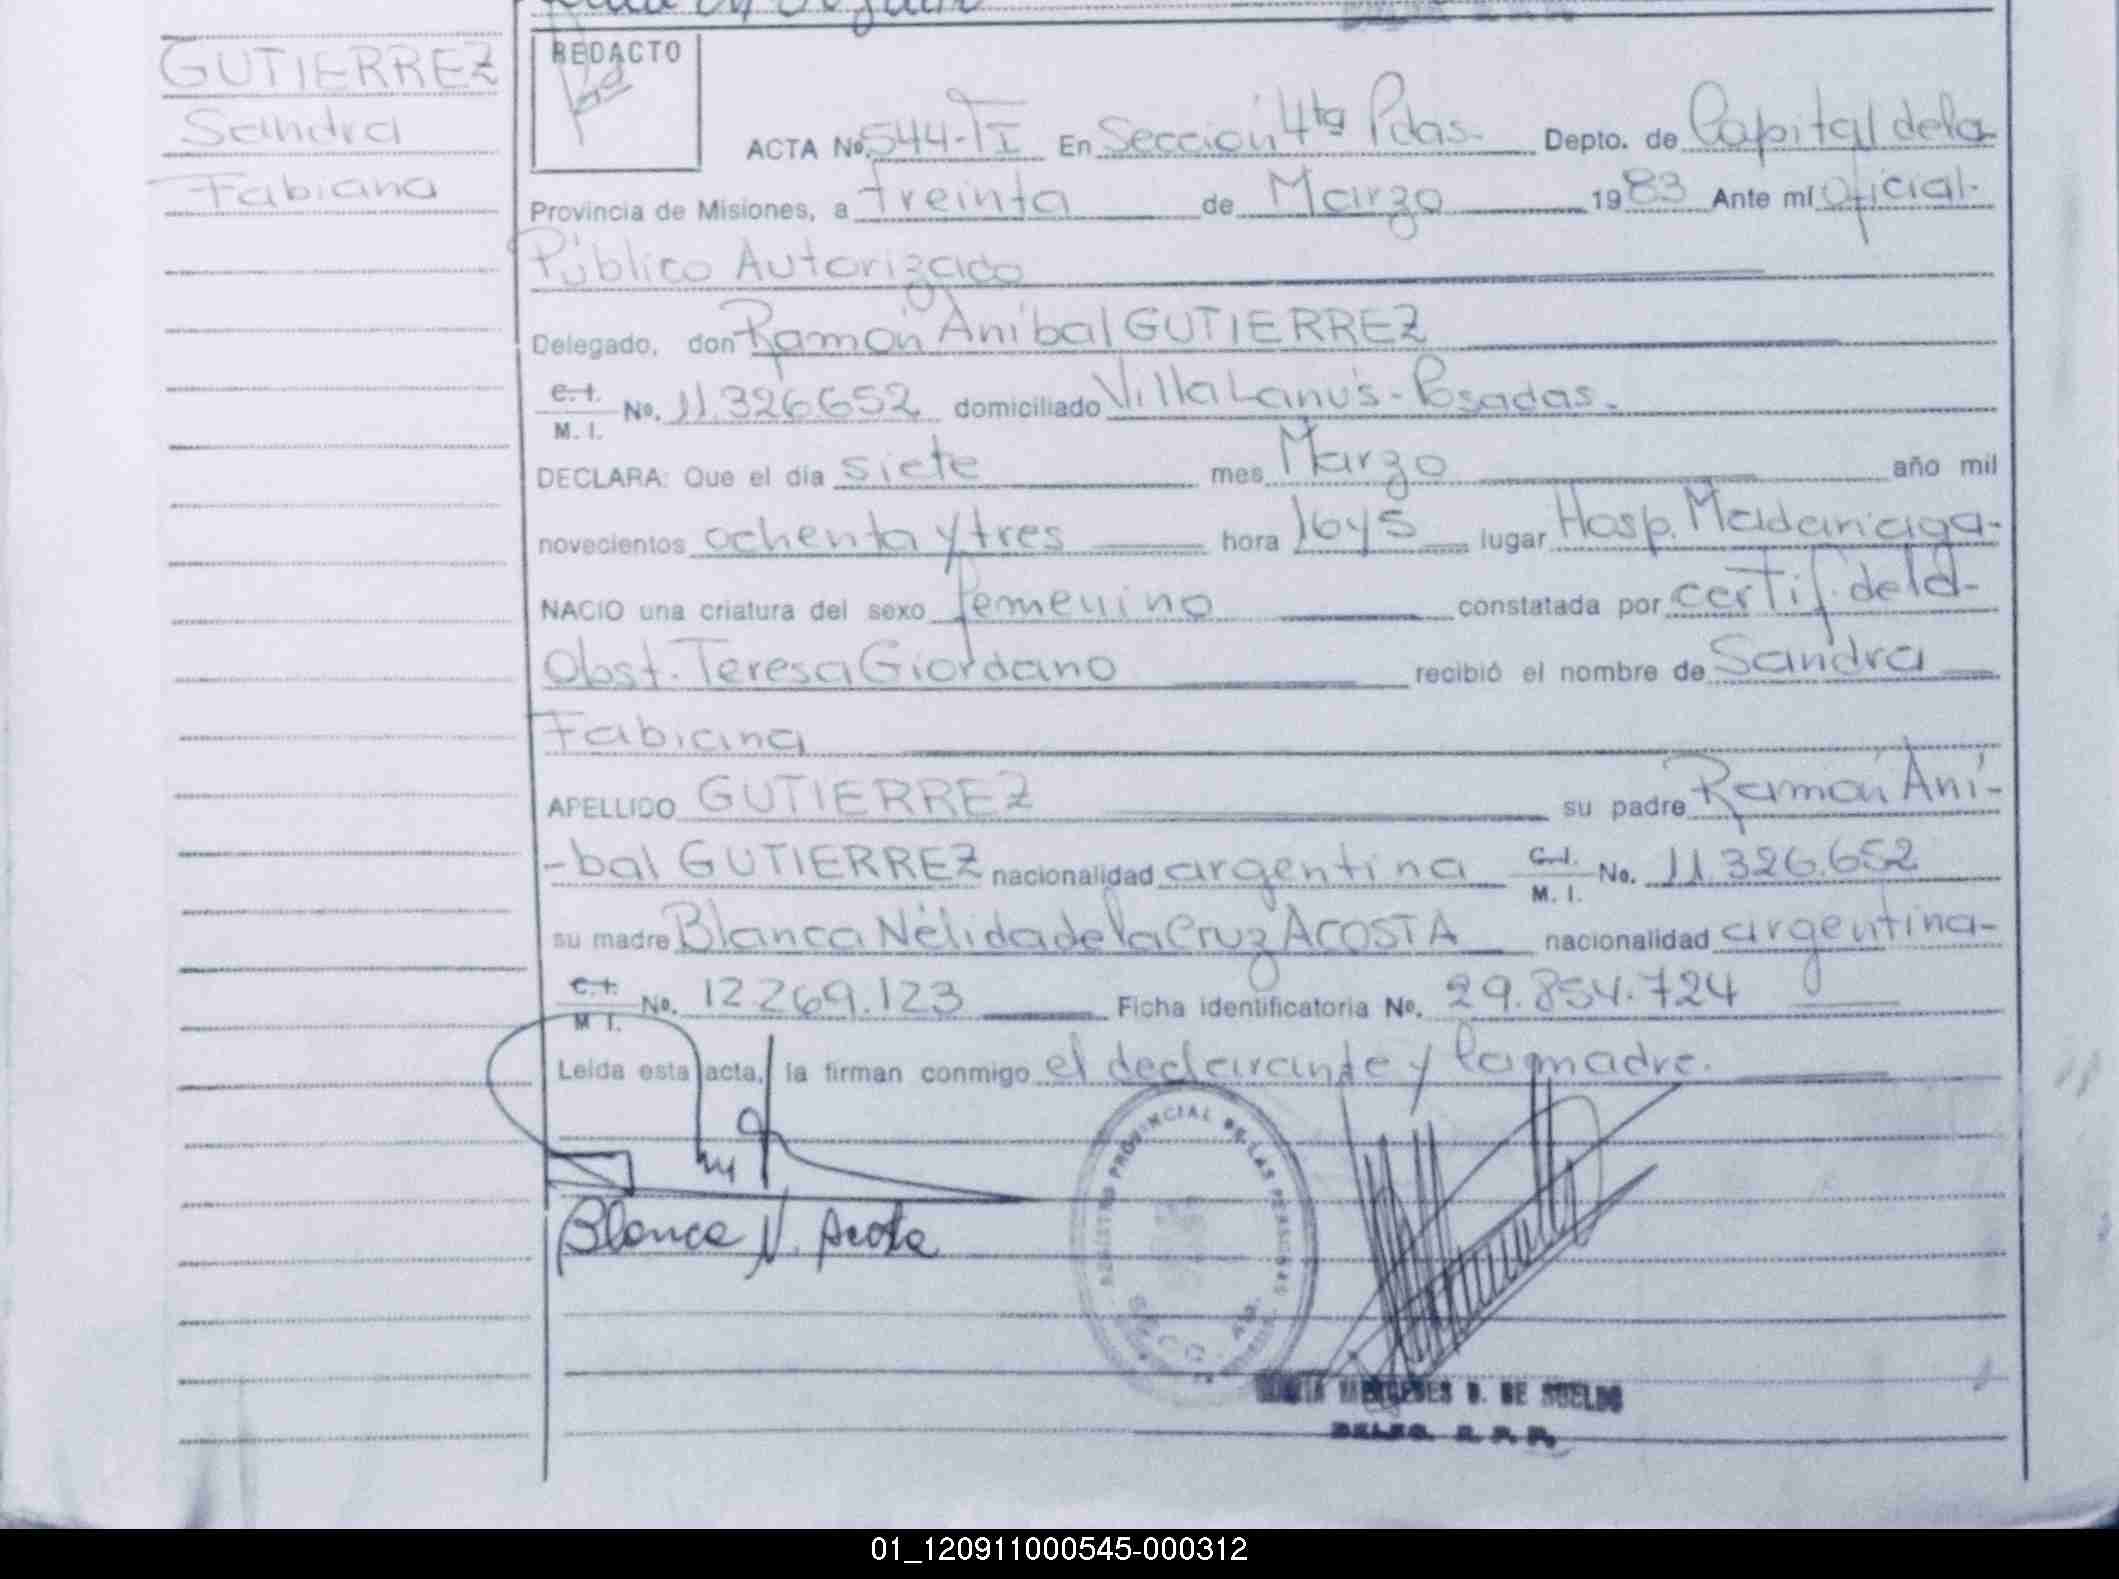 GUTIERREZ
Sandra
Fabiana
REDACTO
ACTA No. 544-TI En Sección 4ta Pdas. Depto. de Capital de la
Provincia de Misiones, a treinta de Marzo 1983 Ante mí Oficial
Público Autorizado
Delegado, don Ramón Aníbal GUTIERREZ
C.I. M.I. No. 11.326.652 domiciliado Villa Lanús - Posadas.
DECLARA: Que el día siete mes Marzo año mil
novecientos ochenta y tres hora 1645 lugar Hosp. Madariaga-
NACIO una criatura del sexo femenino constatada por certif. de la-
Obst. Teresa Giordano recibió el nombre de Sandra
Fabiana
APELLIDO GUTIERREZ su padre Ramón Aní-
-bal GUTIERREZ nacionalidad argentina C.I. M.I. No. 11.326.652
su madre Blanca Nélida de la Cruz ACOSTA nacionalidad argentina-
C.I. M.I. No. 12.269.123 Ficha identificatoria No. 29.854.724
Leída esta acta, la firman conmigo el declarante y la madre.
Blanca N. Acosta
REGISTRO PROVINCIAL DE LAS PERSONAS
MERCEDES D. DE SUELDO
DELEG. R. P. P.
01_120911000545-000312